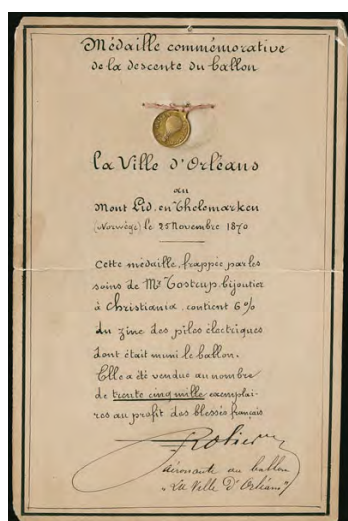 Médaille commémorative
de la descente du ballon
La Ville d'Orléans
au
Mont Lid. en Thelemarken
(Norwège) le 25 Novembre 1870
Cette médaille, frappée par les
soins de Mr Tostrup, bijoutier
à Christiania, contient 6%
du zinc des piles électriques
dont était muni le ballon.
Elle a été vendue au nombre
de trente cinq mille exemplai-
res au profit des blessés français
Rolier
aéronaute au ballon
"La Ville D'Orléans"